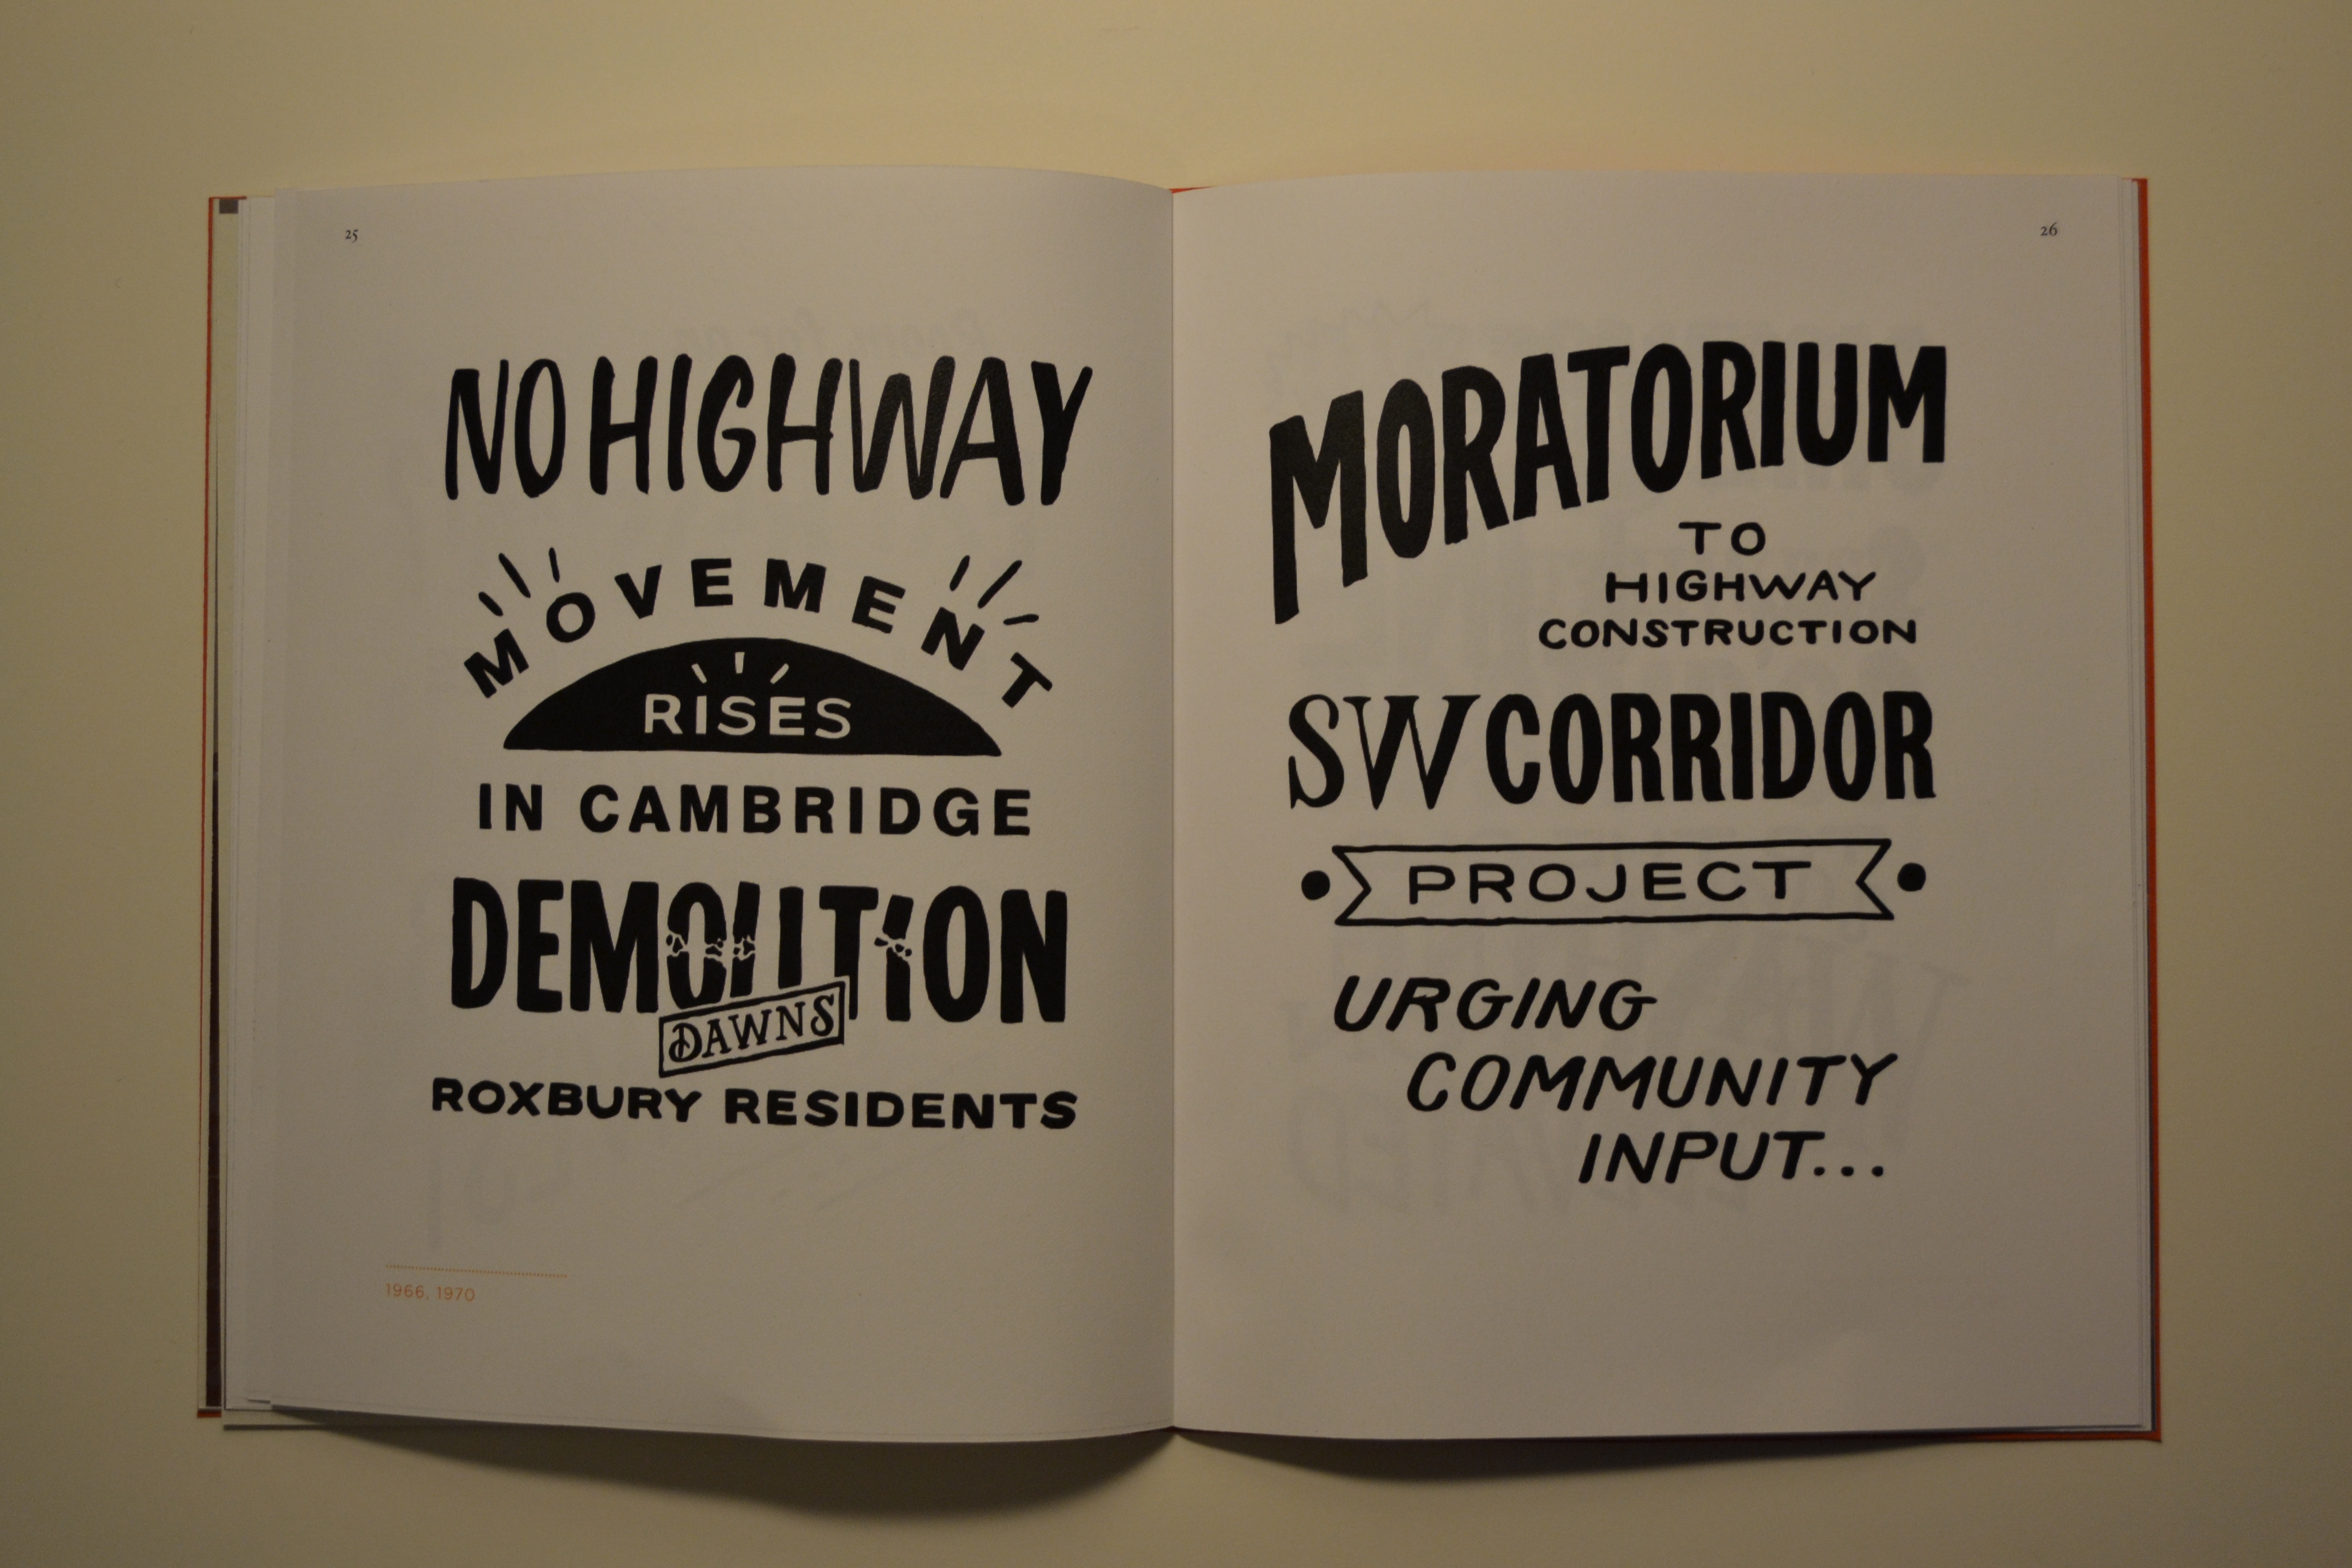 25
NO HIGHWAY
MOVEMENT
RISES
IN CAMBRIDGE
DEMOLITION
DAWNS
ROXBURY RESIDENTS
1966, 1970
26
MORATORIUM
TO
HIGHWAY
CONSTRUCTION
SW CORRIDOR
PROJECT
URGING
COMMUNITY
INPUT...